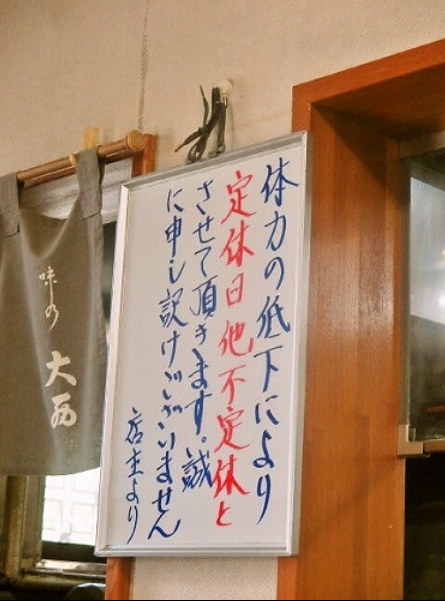 体力の低下により
定休日他不定休と
させて頂きます。誠
に申し訳けございません
店主より
味の大西